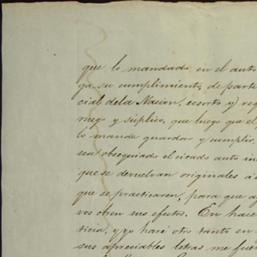 que lo mandado en el auto
ga su cumplimiento, de parte
cial dela Nacion, exorto y req
ruego y suplico, que luego que el
lo mande guardar y cumplir,
sea obsequiado el citado auto in
que se devuelvan originales á
que se practicaren, para que a
nos obren sus efectos. En hacer
ticia, y yo haré otro tanto en
sus apreciables letras me fue